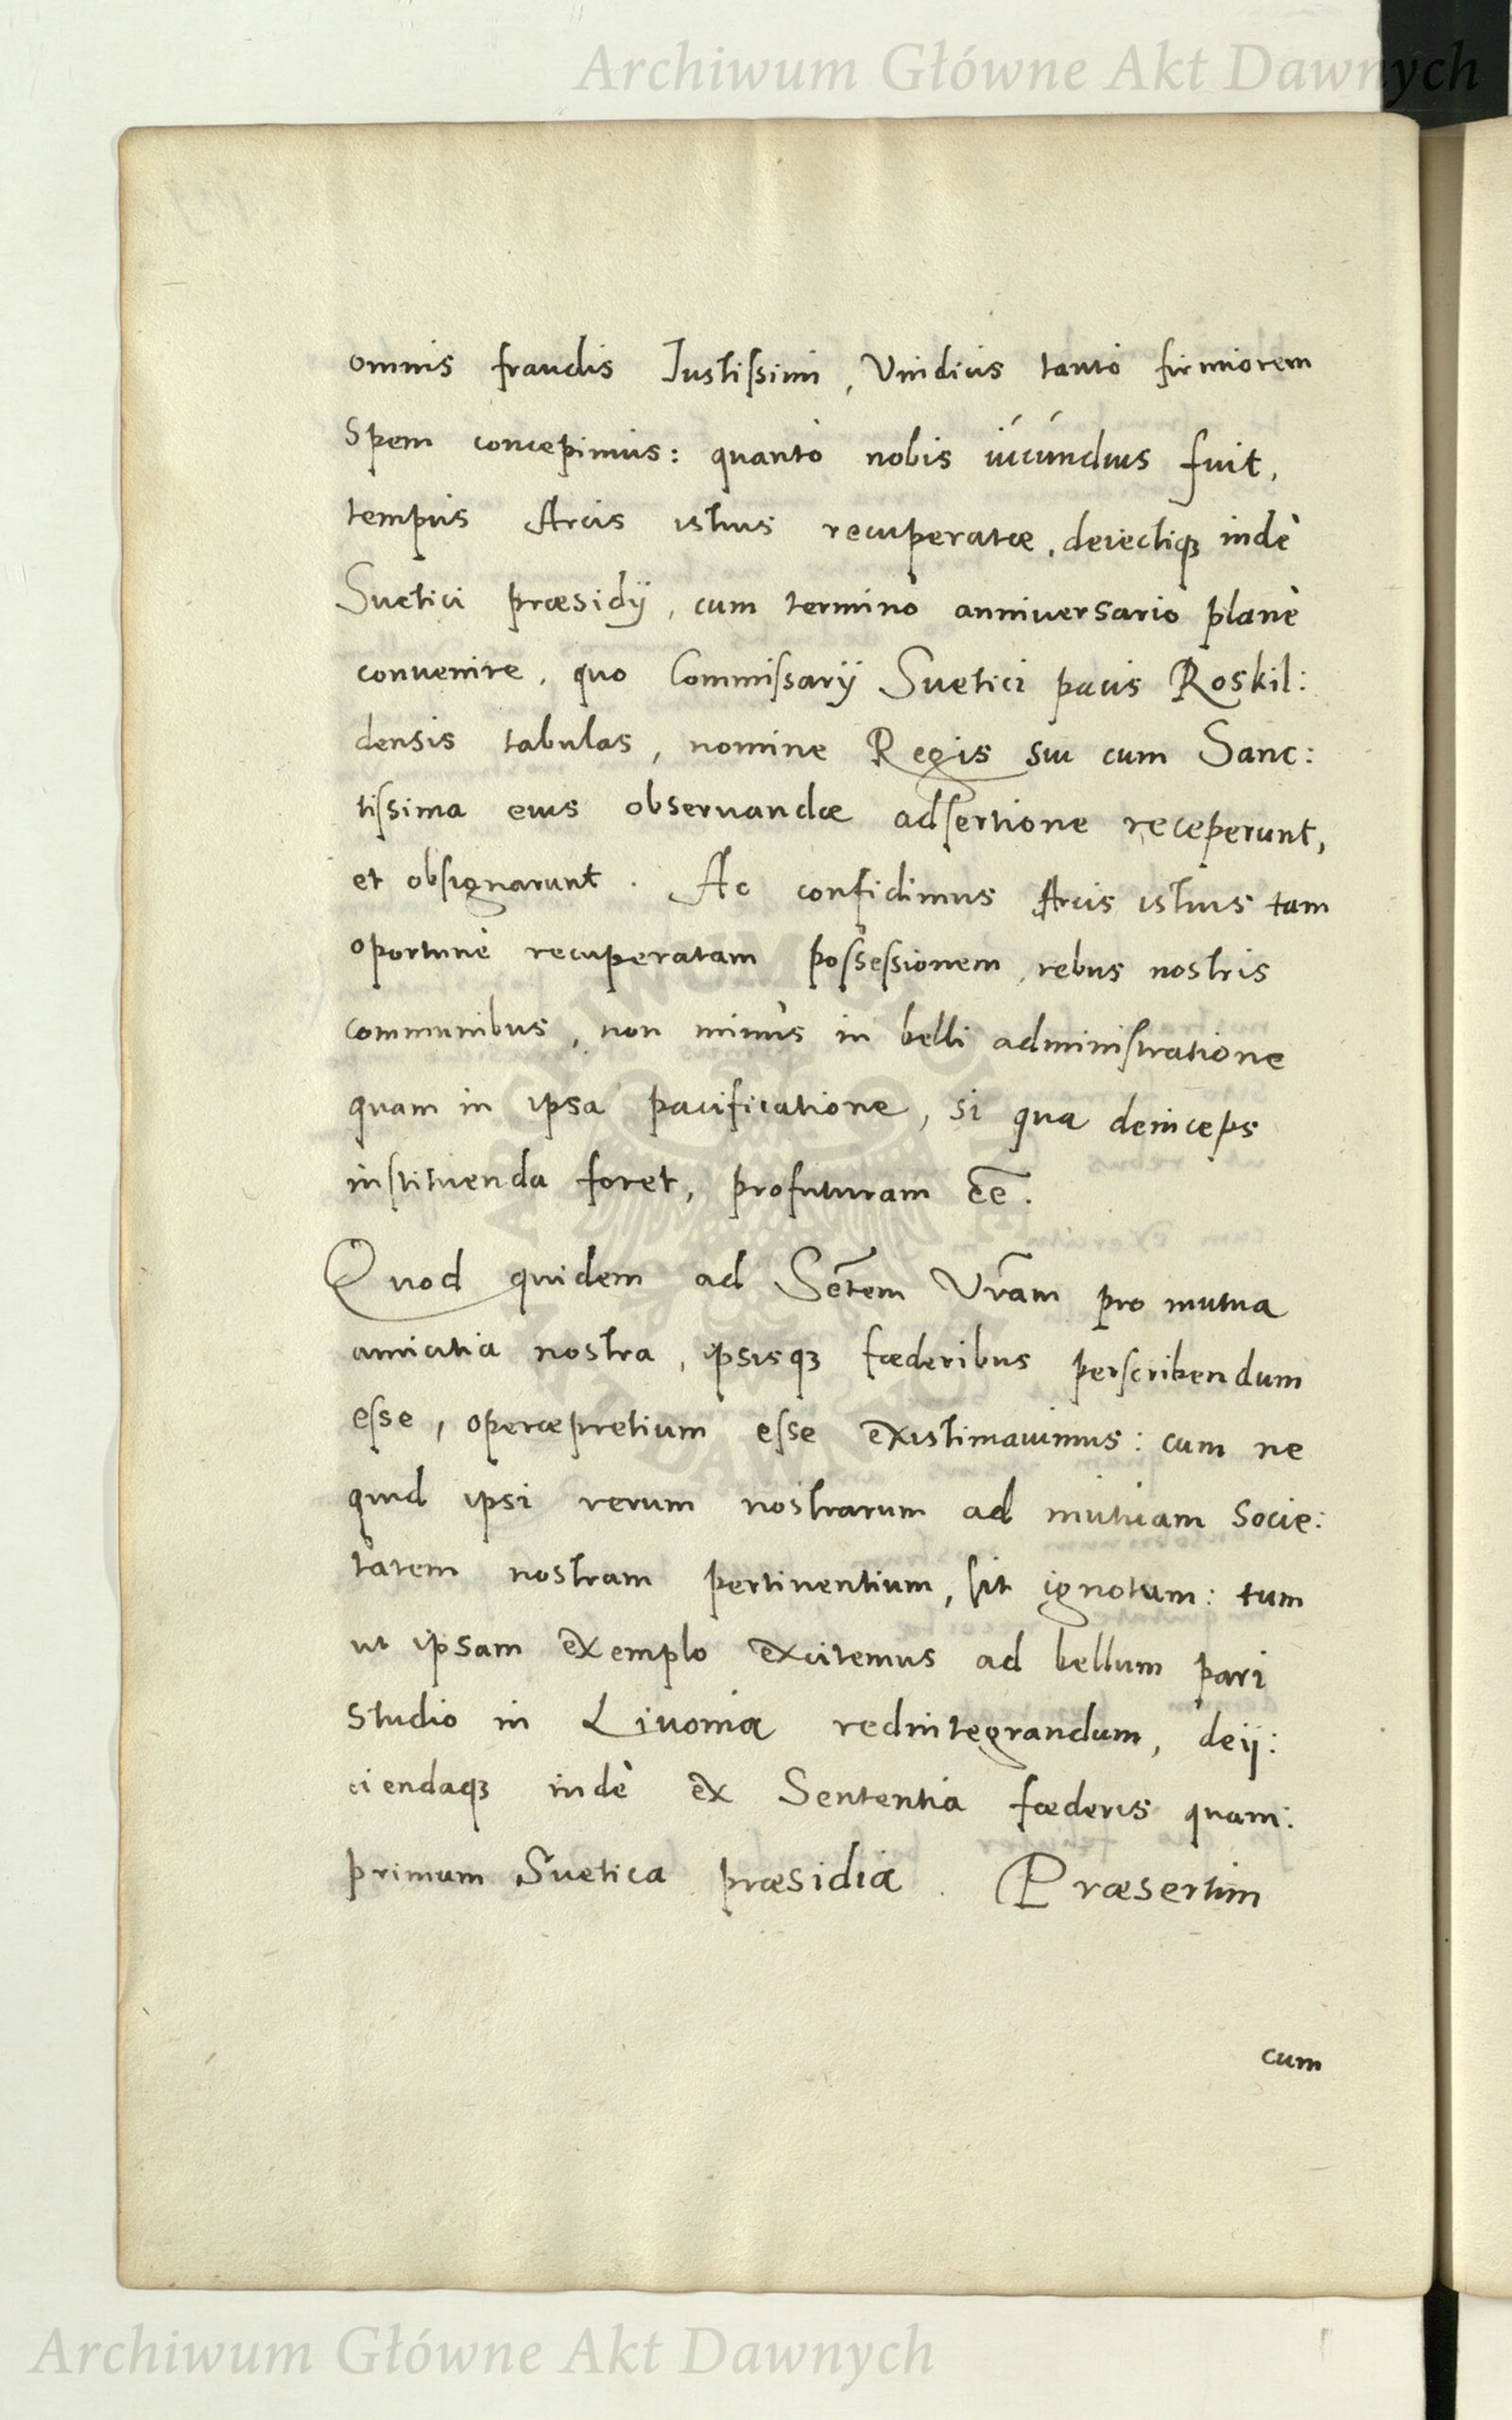 Archiwum Główne Akt Dawnych
omnis fraudis Iustissimi, Vindicis tantò firmiorem
Spem concepimus: quantò nobis iucundius fuit,
tempus Arcis istius recuperatæ, deiectiqꝫ indè
Suetici præsidij, cum terminò anniuersario planè
conuenire, quo Commissarij Suetici pacis Roskil:
densis tabulas, nomine Regis sui cum Sanc:
tissima eius obseruandæ adsertione receperunt,
et obsignarunt. Ac confidimus Arcis istius tam
oportunè recuperatam possessionem, rebus nostris
communibus, non minùs in belli administratione
quam in ipsa pacificatione, si qua deinceps
instituenda foret, profuturam ēē.
Quod quidem ad Sētem Vrām pro mutua
amicitia nostra, ipsisqꝫ fœderibus perscribendum
esse, operæpretium esse existimauimus: cum ne
quid ipsi rerum nostrarum ad mutuam Socie:
tatem nostram pertinentium, sit ignotum: tum
ut ipsam exemplo excitemus ad bellum pari
Studio in Liuonia redintegrandum, deij:
ciendaqꝫ indè ex Sententia fœderis quam:
primum Suetica præsidia. Præsertim
cum
ARCHIWUM GŁÓWNE AKT DAWNYCH
Archiwum Główne Akt Dawnych